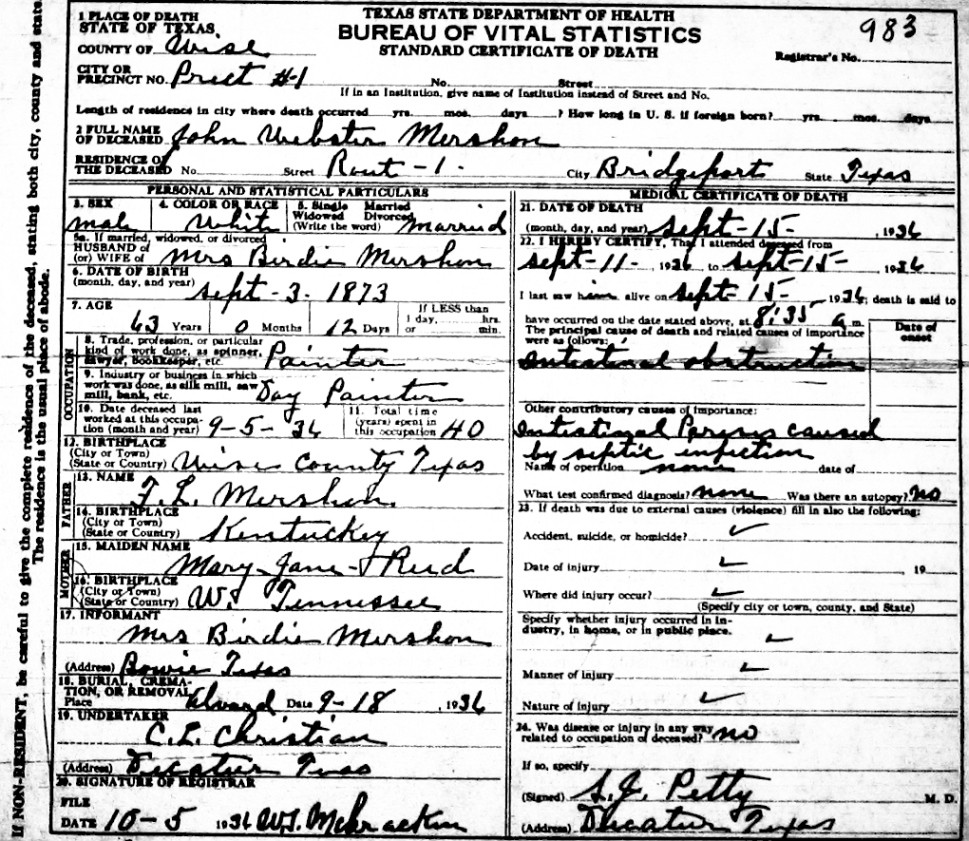 TEXAS STATE DEPARTMENT OF HEALTH
BUREAU OF VITAL STATISTICS
STANDARD CERTIFICATE OF DEATH
983
Registrar's No.
1 PLACE OF DEATH
STATE OF TEXAS,
COUNTY OF Wise
CITY OR PRECINCT NO. Prect #1 No. Street
If in an Institution, give name of Institution instead of Street and No.
Length of residence in city where death occurred yrs. mos. days ? How long in U. S. if foreign born? yrs. mos. days
2 FULL NAME OF DECEASED John Webster Mershon
RESIDENCE OF THE DECEASED No. Street Rout-1- City Bridgeport State Texas
PERSONAL AND STATISTICAL PARTICULARS
3. SEX male
4. COLOR OR RACE White
5. Single Married Widowed Divorced (Write the word) Married
5a. If married, widowed, or divorced
HUSBAND of (or) WIFE of Mrs Birdie Mershon
6. DATE OF BIRTH (month, day, and year) Sept-3-1873
7. AGE 63 Years 0 Months 12 Days If LESS than 1 day, hrs. or min.
OCCUPATION
8. Trade, profession, or particular kind of work done, as spinner, sawyer, bookkeeper, etc. Painter
9. Industry or business in which work was done, as silk mill, saw mill, bank, etc. Day Painter
10. Date deceased last worked at this occupation (month and year) 9-5-36
11. Total time (years) spent in this occupation 40
12. BIRTHPLACE (City or Town) (State or Country) Wise County Texas
FATHER
13. NAME F. L. Mershon
14. BIRTHPLACE (City or Town) (State or Country) Kentuckey
MOTHER
15. MAIDEN NAME Mary Jane Reed
16. BIRTHPLACE (City or Town) (State or Country) W. Tennessee
17. INFORMANT Mrs Birdie Mershon
(Address) Bowie Texas
18. BURIAL, CREMATION, OR REMOVAL
Place Alvord Date 9-18 , 1936
19. UNDERTAKER C. L. Christian
(Address) Decatur Texas
20. SIGNATURE OF REGISTRAR
FILE DATE 10-5 1936
MEDICAL CERTIFICATE OF DEATH
21. DATE OF DEATH (month, day, and year) Sept-15- , 1936
22. I HEREBY CERTIFY, That I attended deceased from
Sept-11- , 1936 to Sept-15- 1936
I last saw him alive on Sept-15- , 1936; death is said to
have occurred on the date stated above, at 8:35 a m.
The principal cause of death and related causes of importance were as follows:
Date of onset
Intestinal obstruction
Other contributory causes of importance:
Intestinal Paresis caused
by septic infection
Name of operation none date of
What test confirmed diagnosis? none Was there an autopsy? no
23. If death was due to external causes (violence) fill in also the following:
Accident, suicide, or homicide? ✓
Date of injury ✓ 19
Where did injury occur? ✓
(Specify city or town, county, and State)
Specify whether injury occurred in industry, in home, or in public place. ✓
Manner of injury ✓
Nature of injury ✓
24. Was disease or injury in any way related to occupation of deceased? no
If so, specify
(Signed) S. J. Petty M. D.
(Address) Decatur Texas
If NON-RESIDENT, be careful to give the complete residence of the deceased, stating both city, county and state.
The residence is the usual place of abode.